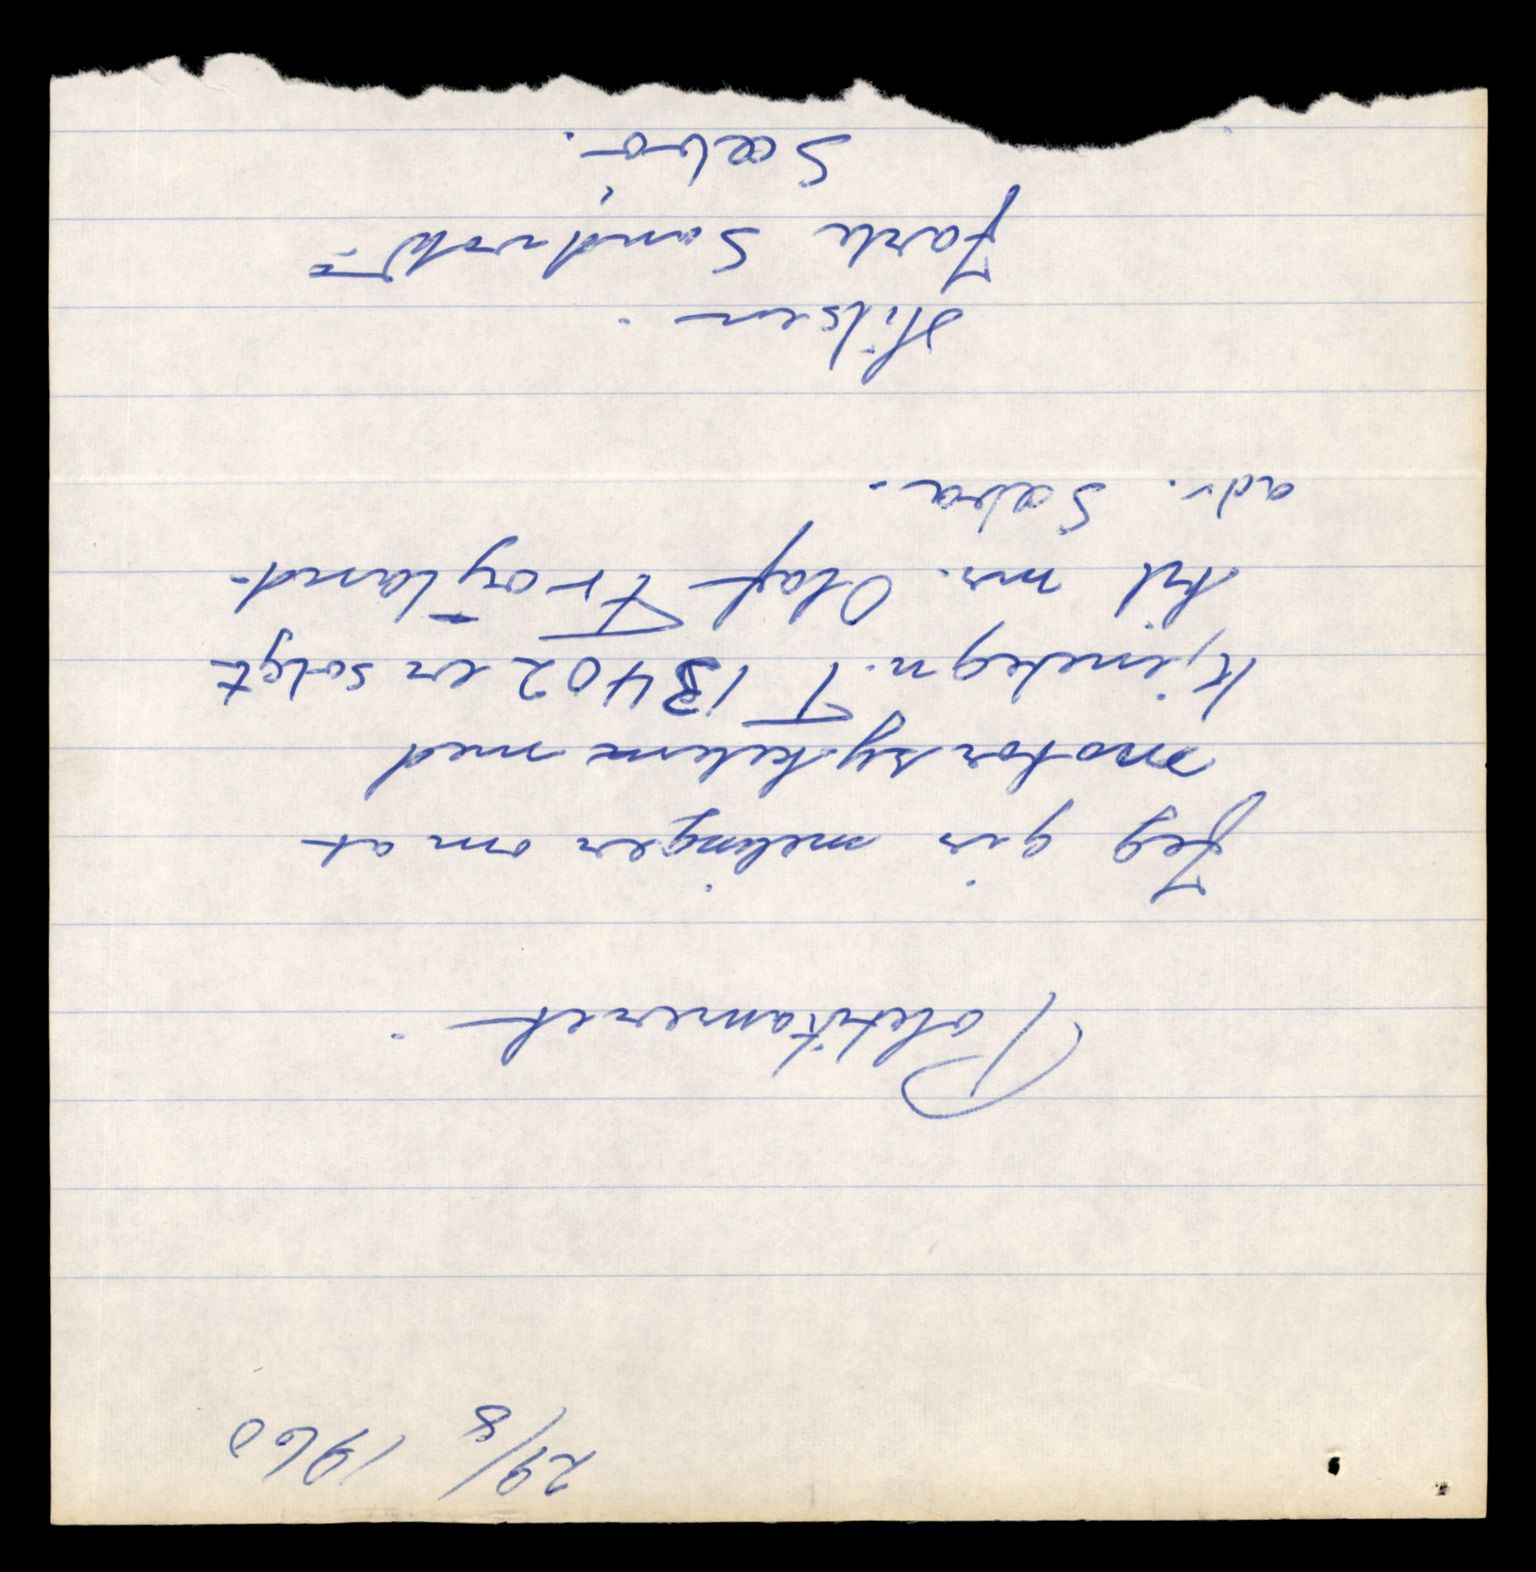 29/8 1960
Politikameret.
Jeg gir melinger om at
motorsykelene med
Kjindegn. T 13402 er solgt
til mr. Olaf Frøyland.
adr. Sæbø.
Hilsen.
Jarle Sandvold
Sæbø.